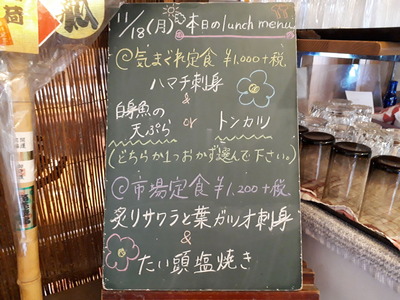 11/18(月) 本日のlunch menu
@気まぐれ定食 ¥1,000+税
ハマチ刺身
&
白身魚の
天ぷら or トンカツ
(どちらか1つおかず選んで下さい。)
@市場定食 ¥1,200+税
炙りサワラと葉ガツオ刺身
&
たい頭塩焼き